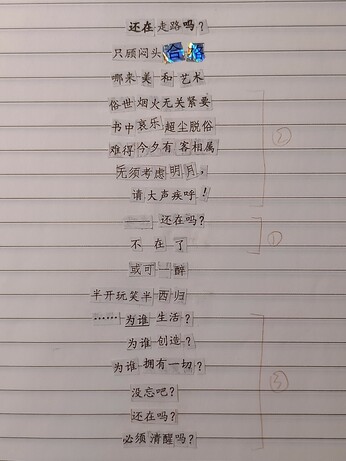 还在走路吗？
只顾闷头合格
哪来美和艺术
俗世烟火无关紧要
书中哀乐超尘脱俗
难得今夕有客相属
无须考虑明月，
请大声疾呼！
②
——还在吗？
不在了
①
或可一醉
半开玩笑半西归
……为谁生活？
为谁创造？
为谁拥有一切？
③
没忘吧？
还在吗？
必须清醒吗？